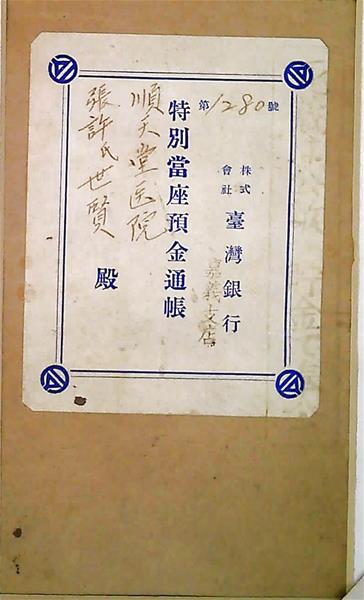 第1280號
株式會社臺灣銀行
嘉義支店
特別當座預金通帳
順天堂医院
張許氏世賢殿